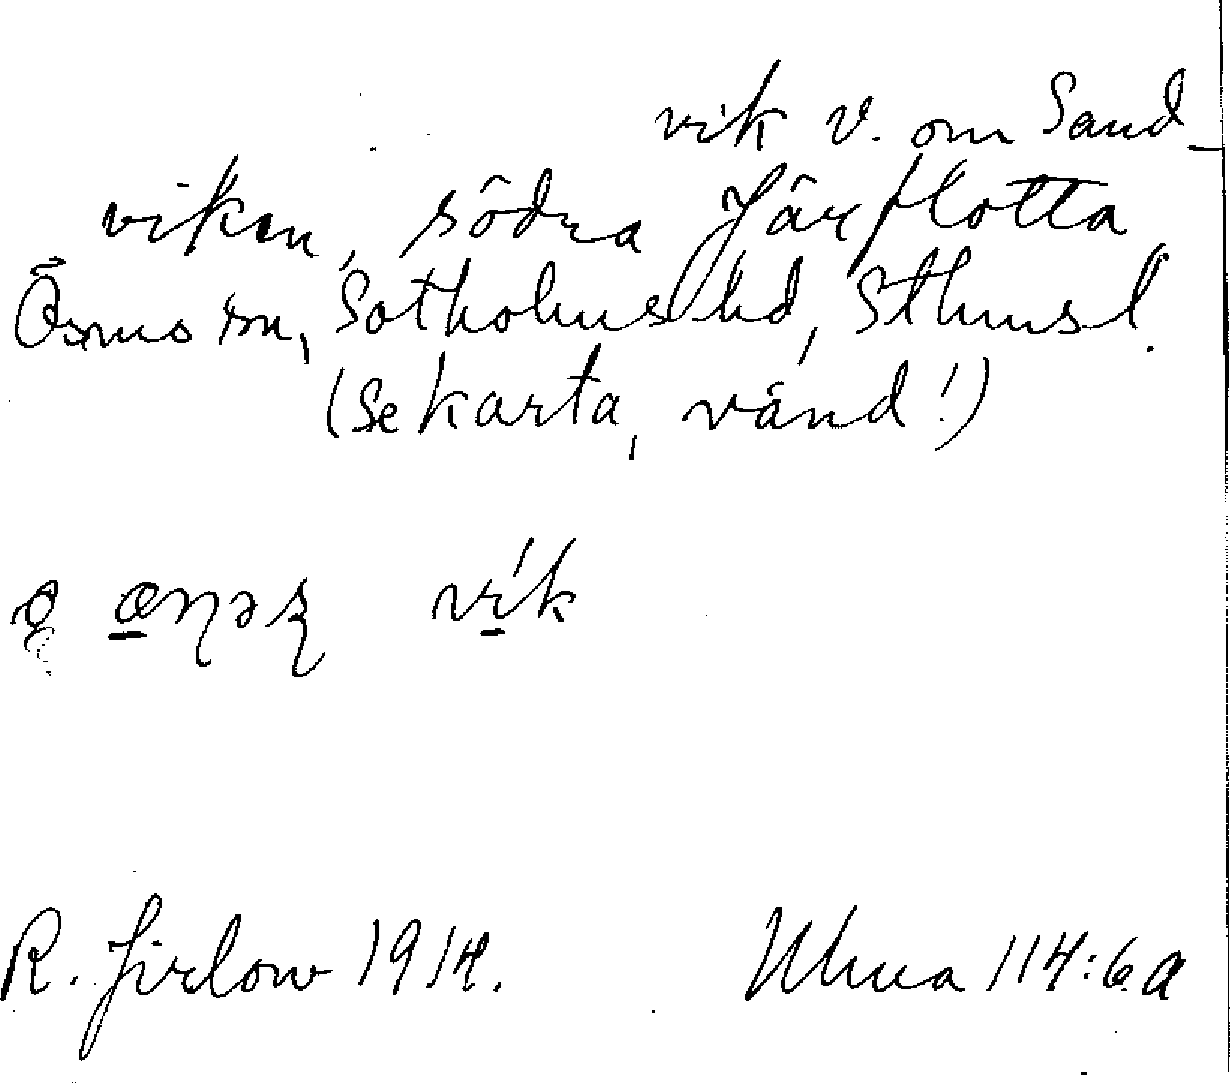 vik v. om Sand-
viken, södra Järflotta
Ösmo sn, Sotholms hd, Sthmsl.
(se karta, vänd!)
vik
R. Jirlow 1914. Ulma 114:6a